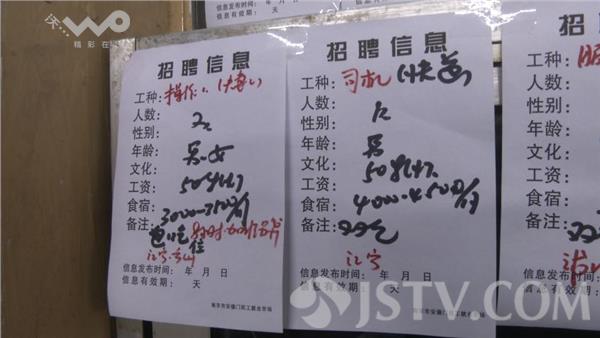 沃
WO
精彩在
信息有效期： 天
招聘信息
工种：操作工（快递）
人数：
性别：
年龄：男.女
文化：50岁以下
工资：
食宿：3000-3500/月
备注：包吃住
江宁.
信息发布时间： 年 月 日
信息有效期： 天
南京市安德门民工就业市场
招聘信息
工种：司机（快递）
人数：
性别：
年龄：男
文化：50岁以下
工资：4000-4500/月
食宿：
备注：
江宁
信息发布时间： 年 月 日
信息有效期： 天
南京市安德门民工就业市场
招
工种：
人数：
性别：
年龄：
文化：
工资：
食宿：
备注：
信息发布
信息有效
JSTV.COM